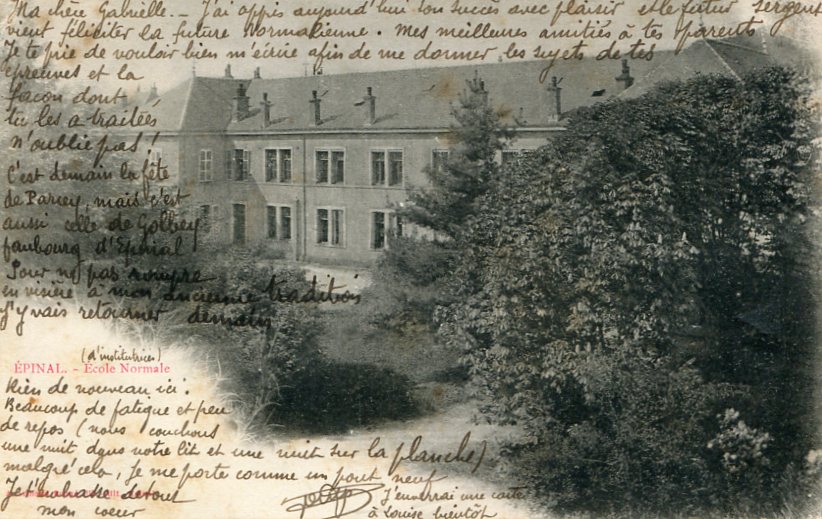 Ma chère Gabrielle.. J'ai appris aujourd'hui ton succès avec plaisir et le futur sergent
vient féliciter la future Normalienne. Mes meilleures amitiés à tes parents
Je te prie de vouloir bien m'écrire afin de me donner les sujets de tes
épreuves et la
façon dont
tu les a traitées
n'oublie pas !
C'est demain la fête
de Parcey, mais c'est
aussi celle de Golbey
faubourg d'Epinal
Pour ne pas rompre
en visière à mon ancienne tradition
j'y vais retourner demain
(d'institutrices)
ÉPINAL. - École Normale
Rien de nouveau ici.
Beaucoup de fatigue et peu
de repos (nous couchons
une nuit dans notre lit et une nuit sur la planche)
malgré cela, je me porte comme un pont neuf
Je t'embrasse de tout
mon coeur
J'enverrai une carte
à Louise bientôt